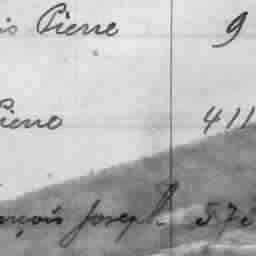 is Pierre 9
Pierro 411
nçois Joseph 573